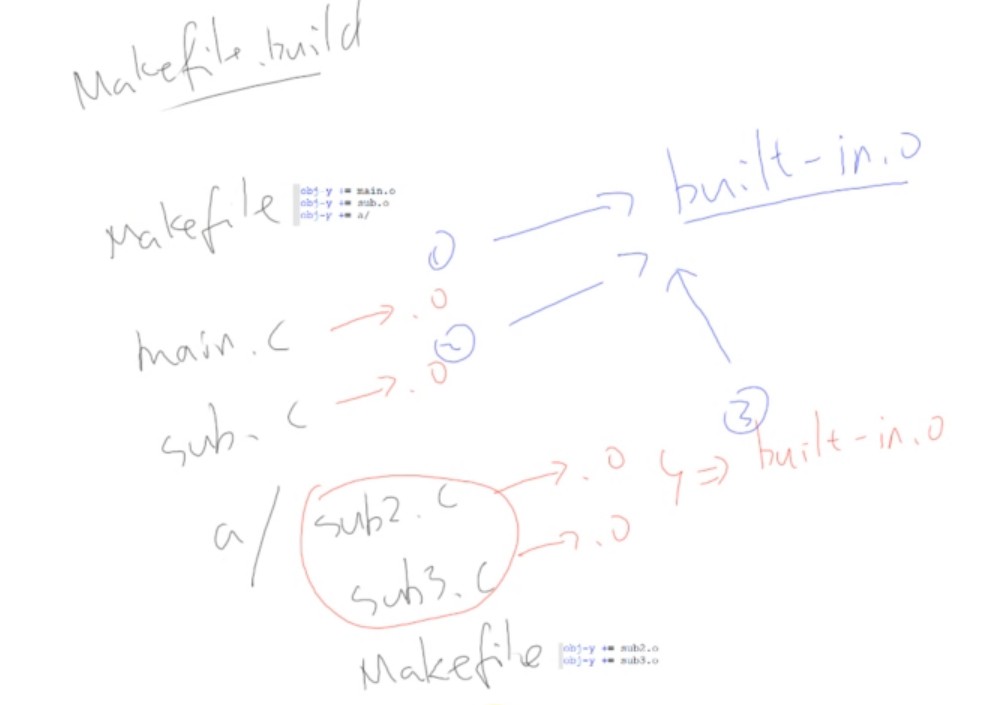 Makefile.build
built-in.o
Makefile
obj-y += main.o
obj-y += sub.o
obj-y += a/
①
main.c → .o
②
sub.c → .o
③
a/ sub2.c → .o } => built-in.o
sub3.c → .o
Makefile
obj-y += sub2.o
obj-y += sub3.o